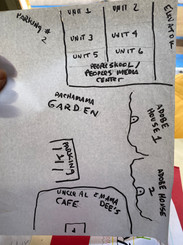 PARKING
# 2
UNIT 1
UNIT 2
ELEVATOR
UNIT 3
UNIT 4
UNIT 5
UNIT 6
PEOPLESKOOL/
PEOPLES MEDIA
CENTER
PACHAMAMA
GARDEN
ADOBE
HOUSE
1
PARKING
ADOBE HOUSE
2
UNCLE AL & MAMA
DEE'S
CAFE